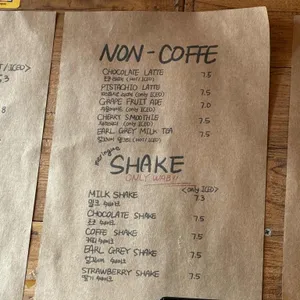 NON-COFFE
CHOCOLATE LATTE 7.5
초코라떼 (HOT/ICED)
PISTACHIO LATTE 7.5
피스타치오라떼 (only ICED)
GRAPE FRUIT ADE 7.0
자몽에이드 (only ICED)
CHERRY SMOOTHIE 7.5
체리스무디 (only ICED)
EARL GREY MILK TEA 7.5
얼그레이 밀크티 (HOT/ICED)
SHAKE
<only ICED>
MILK SHAKE 7.3
밀크 쉐이크
CHOCOLATE SHAKE 7.5
초코 쉐이크
COFFE SHAKE 7.5
커피 쉐이크
EARL GREY SHAKE 7.5
얼그레이 쉐이크
STRAWBERRY SHAKE 7.5
딸기 쉐이크